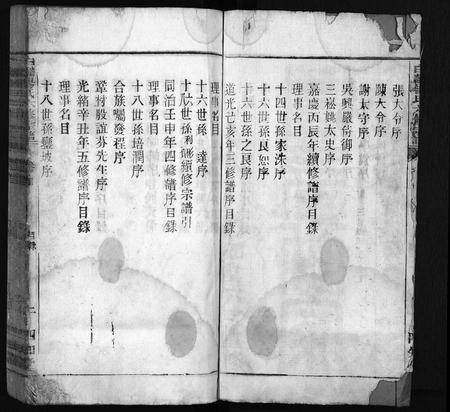 張大令序
陳大令序
謝太守序
吳興嚴侍御序
三崧姚太史序
嘉慶丙辰年續修譜序目錄
十四世孫家洙序
十六世孫良恕序
十六世孫之良序
道光己亥年三修譜序目錄
理事名目
十六世孫 達序
十八世孫利 續修宗譜引
同治壬申年四修譜序目錄
理事名目
十八世孫培潤序
合族囑發程序
鞏村殷誼芬先生序
光緒辛丑年五修譜序目錄
理事名目
十八世孫 坡序
目錄